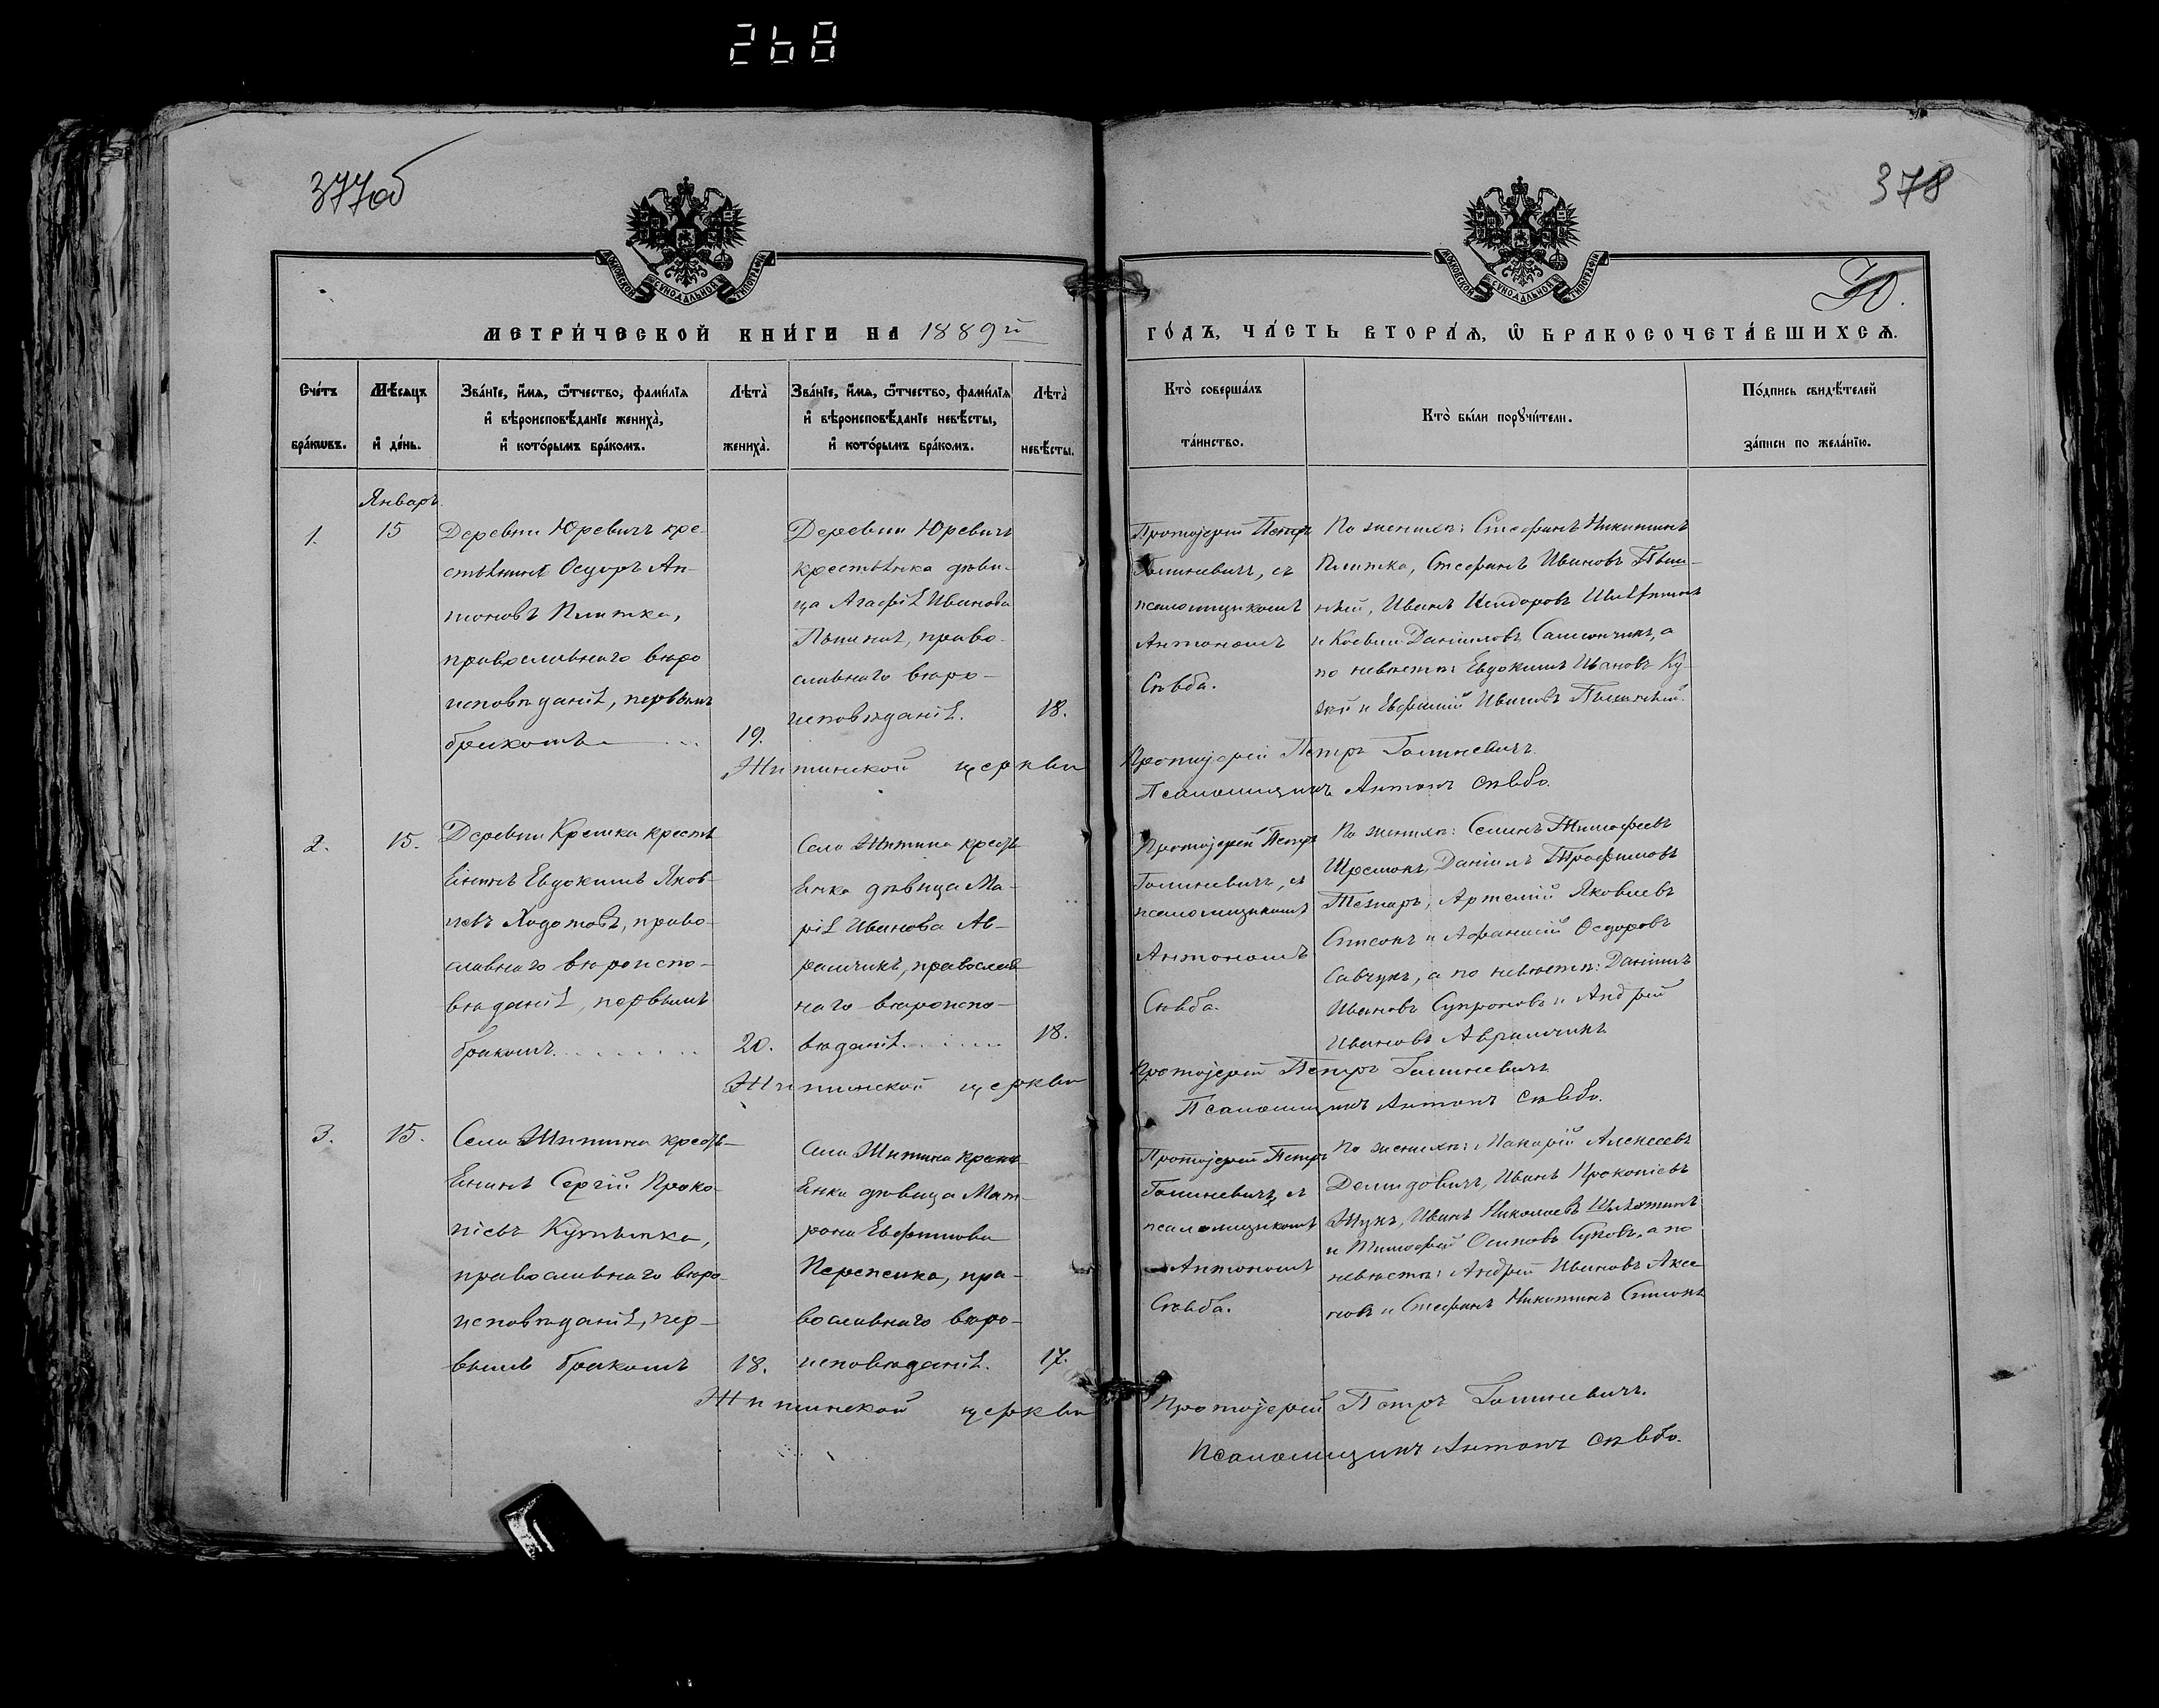 268
377об
378
МОСКОВСКОЙ СѴНОДАЛЬНОЙ ТИПОГРАФІИ
МОСКОВСКОЙ СѴНОДАЛЬНОЙ ТИПОГРАФІИ
МЕТРИ́ЧЕСКОЙ КНИ́ГИ НА 1889й
ГО́ДЪ, ЧА́СТЬ ВТОРА́Ѧ, Ѿ БРАКОСОЧЕТА́ВШИХСѦ.
Сче́тъ бра́кѡвъ.
Мѣ́сѧцъ и҆ де́нь.
Зва́нїе, и҆́мѧ, ѻ҆́тчество, фами́лїѧ
и҆ вѣроисповѣ́данїе жениха̀,
и҆ кото́рымъ бра́комъ.
Лѣта̀ жениха̀.
Зва́нїе, и҆́мѧ, ѻ҆́тчество, фами́лїѧ
и҆ вѣроисповѣ́данїе невѣ́сты,
и҆ кото́рымъ бра́комъ.
Лѣта̀ невѣ́сты.
Кто̀ соверша́лъ
та́инство.
Кто̀ бы́ли порꙋчи́тели.
По́дпись свидѣ́телей
за́писи по жела́нїю.
Январь
1.
15
Деревни Юревичъ кре-
стьянинъ Ѳедоръ Ан-
тоновъ Плитка,
православнаго вѣро
исповѣданія, первымъ
бракомъ
19.
Деревни Юревичъ
крестьянка дѣви-
ца Агафія Иванова
православнаго вѣро-
исповѣданія.
18.
Протоіерей Петръ
Голиневичъ, съ
псаломщикомъ
Антономъ
Сѣвба.
По женихѣ: Стефанъ Никитинъ
Плитка, Стефанъ Ивановъ
Иванъ
и Даніиловъ а
по невѣстѣ: Евдокимъ Ивановъ
и Евфимій Ивановъ
Житинской церкви
Протоіерей Петръ Голиневичъ.
Псаломщикъ Антонъ Сѣвба.
2.
15.
Деревни кресть
янинъ Евдокимъ Яков-
левъ Ходотовъ, право-
славнаго вѣроиспо-
вѣданія, первымъ
бракомъ
20.
Села Житина кресть
янка дѣвица Ма-
рія Иванова Ав-
рамчикъ, православ
наго вѣроиспо-
вѣданія
18.
Протоіерей Петръ
Голиневичъ, съ
псаломщикомъ
Антономъ
Сѣвба.
По женихѣ: Семенъ Тимофеевъ
Даніилъ Трофимовъ
Артемій Яковлевъ
и Афанасій Ѳедоровъ
Савчукъ, а по невѣстѣ: Даніилъ
Ивановъ Супроновъ и Андрей
Ивановъ Аврамчикъ
Житинской церкви
Протоіерей Петръ Голиневичъ
Псаломщикъ Антонъ Сѣвба.
3.
15.
Села Житина кресть-
янинъ Сергій Проко-
піевъ
православнаго вѣро-
исповѣданія, пер-
вымъ бракомъ
18.
Села Житина кресть
янка дѣвица Мат-
рона Евфимова
Перепечка, пра-
вославнаго вѣро-
исповѣданія.
17.
Протоіерей Петръ
Голиневичъ, съ
псаломщикомъ
Антономъ
Сѣвба.
По женихѣ: Макарій Алексеевъ
Демидовичъ, Иванъ Прокопіевъ
Жукъ, Иванъ Николаевъ
и Тимофей Осиповъ а по
невѣстѣ: Андрей Ивановъ Аксе-
новъ и Стефанъ Никитинъ
Житинской церкви
Протоіерей Петръ Голиневичъ.
Псаломщикъ Антонъ Сѣвба.